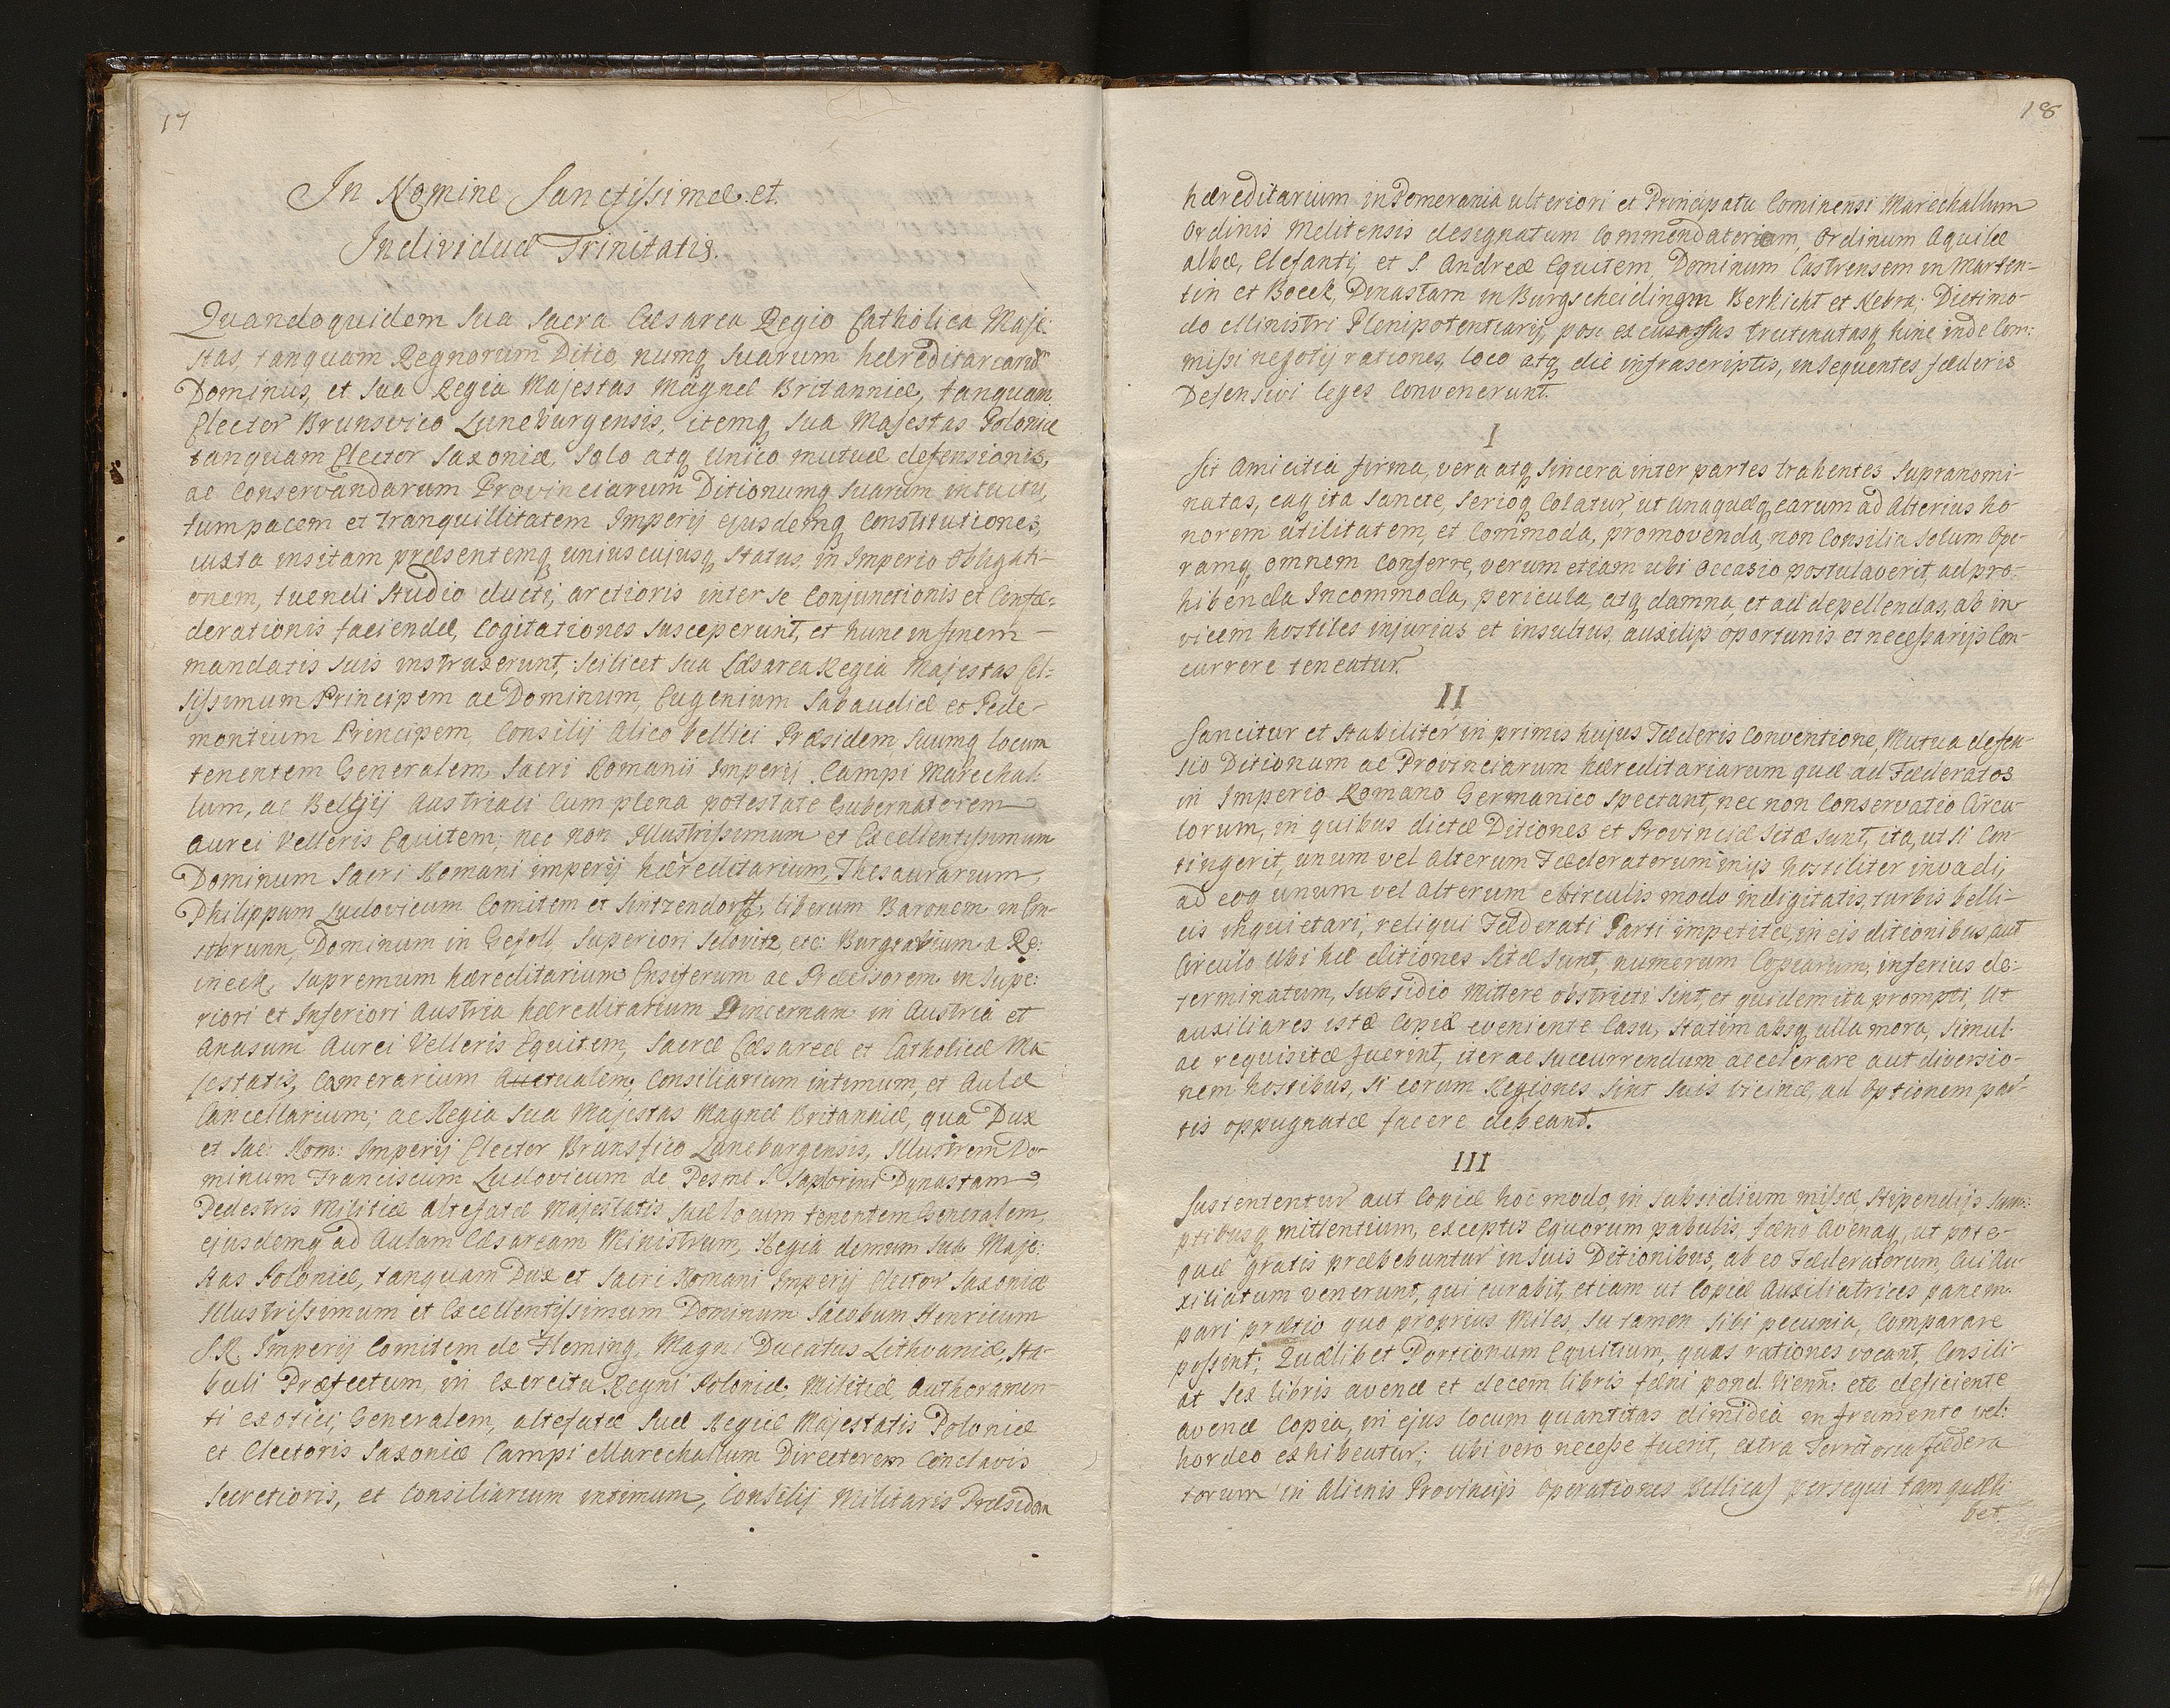 17
In Nomine Sanctissimæ et
Individuæ Trinitatis.
Quandoquidem Sua Sacra Cæsarea Regio Catholica Maje:
stas, tanquam Regnorum Ditio, numq Suarum hæreditariarũ
Dominus, et Sua Regia Majestas Magnæ Britanniæ, tanquam
Elector Brunsvico Luneburgensis, itemq Sua Majestas Poloniæ
tanquam Elector Saxoniæ, Solo atq Unico mutuæ defensionis,
ac Conservandarum Provinciarum Ditionumq Suarum intuitu,
tum pacem et tranquillitatem Imperij ejusdemq Constitutiones,
iuxta insitam præsentemq uniuscujusq Status in Imperio Obligati-
onem, tuendi Studio ducti, arctioris inter Se Conjunctionis et Confæ-
derationis faciendæ, Cogitationes Susceperunt, et hunc in finem
mandatis Suis instruxerunt, Scilicet Sua Cæsarea Regia Majestas Cel:
sissimum Principem ac Dominum, Eugenium Sabaudiæ et Pede-
montium Principem, Consilij Alico bellici Præsidem Suumq locum
tenentem Generalem, Sacri Romanii Imperij Campi Marechal-
lum, ac Belgij Austriaci Cum plena potestate Gubernatorem
Aurei Velleris Equitem; nec non Illustrissimum et Excellentissimum
Dominum Sacri Romani imperij hæreditarium, Thesaurarium,
Philippum Ludovicum Comitem et Sintzendorff, liberum Baronem in Ern-
stbrunn, Dominum in Gefoll, Superiori Selovitz, etc: Burggravium a Re:
ineck, Supremum hæreditarium Ensiferum ac Præcisorem in Supe:
riori et Inferiori Austria hæreditarium Pincernam in Austria et
Anasum Aurei Velleris Equitem, Sacræ Cæsareæ et Catholicæ Ma
jestatis, Camerarium Auctualem, Consiliarium intimum, et Aulæ
Cancellarium; ac Regia Sua Majestas Magnæ Britanniæ, qua Dux
et Sac: Rom: Imperij Elector Brunsfico Luneburgensis, Illustrem Do-
minum Franciscum Ludovicum de Pesme S. Saphorini Dynastam
Pedestris Militiæ altefatæ Majestatis Suæ locum tenentem Generalem,
ejusdemq ad Aulam Cæsaream Ministrum, Regia demum Sua Maje:
stas Poloniæ, tanquam Dux et Sacri Romani Imperij Elector Saxoniæ
Illustrissimum et Excellentissimum Dominum Jacobum Henricum
S.R. Imperij Comitem de Fleming, Magni Ducatus Lithvaniæ, Sta-
buli Præfectum, in Exercitu Regni Poloniæ Militiæ Authoramen
ti exotici, Generalem, altefatæ Suæ Regiæ Majestatis Poloniæ
et Electoris Saxoniæ Campi Marechallum Directorem Conclavis
Secretioris, et Consiliarium intimum, Consilij Militaris Præsidem
18
hæreditarium in Pomerania ulteriori et Principatu Cominensi Marechallum
Ordinis Melitensis designatum Commendatorium, Ordinum Aquilæ
albæ, Elefantij et S. Andreæ Equitem, Dominum Castrensem in Marten-
tin et Boeck, Dinastam in Burgscheidingm Berkicht et Nebra; Dictimo-
do Ministri Plenipotentiarij, post excussas trutinatasq hinc inde Com:
missi nefotij rationes, loco atq die infrascriptis, insequentes fæderis
Defensivi leges Convenerunt.
I
Sit Amicitia firma, vera atq Sincera inter partes trahentes Supranomi-
natas, eaq ita Sancte, Serioq Colatur, ut Unaquæq earum ad Alterius ho
norem utilitatem, et Commoda, promovenda, non Consilia Solum Ope-
ramq omnem Conferre, verum etiam ubi Occasio postulaverit, ad pro-
hibenda Incommoda, pericula, atq damna, et ad depellendas, ab in
vicem hostiles injurias et insultus, auxilijs oportunis et necessarijs Con-
currere teneatur.
II
Sancitur et Stabiliter in primis hujus Fæderis Conventione, Mutua defen-
sio Ditionum ac Provinciarum hæreditariarum quæ ad Fæderatos
in Imperio Romano Germanico Spectant, nec non Conservatio Circu-
lorum, in quibus dictæ Ditiones et Provinciæ Sitæ Sunt, ita, ut Si Con-
tingerit, unum vel Alterum Fæderatorum inijs hostiliter invadi,
ad eoq unum vel Alterum e Circulis modo indigitatis, turbis belli-
cis inquietari, reliqui Fæderati Parti impetitæ, in eis ditionibus, aut
Circulo Ubi hæ ditiones Sitæ Sunt, numerum Copiarum, inferius de:
terminatum, Subsidio Mittere obstricti Sint, et quidem ita prompti, Ut
auxiliares istæ Copiæ eveniente Casu, Statim absq ulla mora, Simul
ac requisitæ fuerint, iter ac Succurrendum accelerare aut diversio-
nem hostibus, Si eorum Regiones Sint Suis vicinæ, ad Optionem par-
tis oppugnatæ facere debeant.
III
Sustententur aut Copiæ hoc modo, in Subsidium missæ, Stipendijs Sum:
ptibusq mittentium, exceptis Equorum pabulis, fæno Avenaq, ut pote-
quæ gratis præbebuntur in Suis Ditionibus, ab eo Fæderatorum, Cui Au-
xiliatum venerunt, qui curabit, etiam ut Copiæ Auxiliatrices panem
pari prætio quo proprius Miles, Su tamen Sibi pecunia, Comparare
possint; Quælibet Portionum Equitium, quas rationes vocant, Consili-
at Sex libris avenæ et decem libris fæni pond. Vienn: etc deficiente
avenæ Copia, in ejus locum quantitas dimidia in frumento vel:
hordeo exhibeatur; Ubi vero necesse fuerit, extra Territoria fædera
torum in Alienis Provincijs Operationes Bellicas persequi tam quæli
bet.